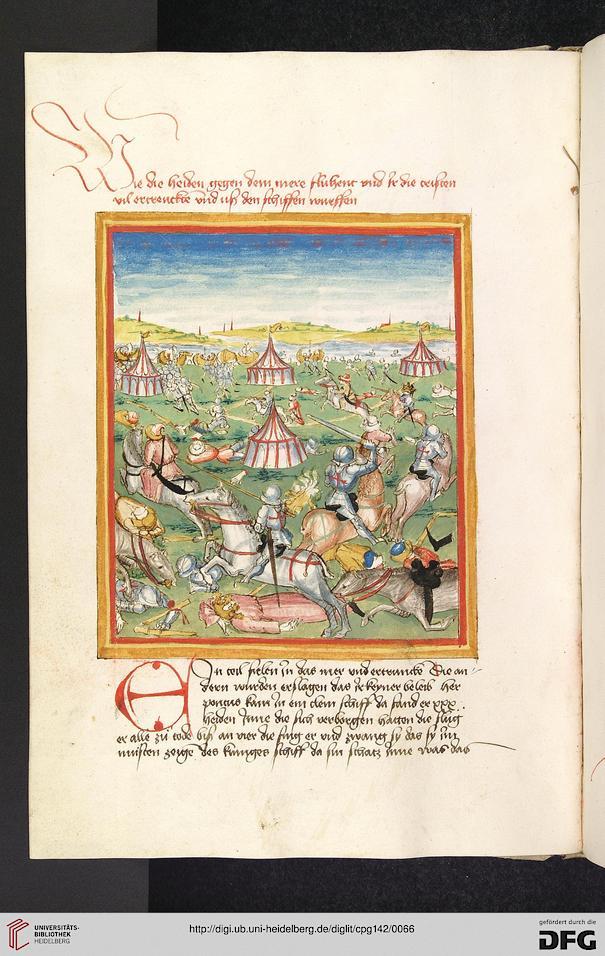 Wie die heiden gegen dem mere fluhent vnd ir die cristen
vil ertrenckte vnd uß den schiffen wurffen
Ein teil fielen in das mer vnd ertruncke Die an
dern wurden erslagen das ir keyner beleib her
poncius kam in ein clein schiff da fand er xxx
heiden Inne die sich verborgen hatten die slug
er alle zu tode biß an vier die fing er vnd zwang sy das sy im
musten zeige des kuniges schiff da sin schatz Inne was das
UNIVERSITÄTS-
BIBLIOTHEK
HEIDELBERG
http://digi.ub.uni-heidelberg.de/diglit/cpg142/0066
gefördert durch die
DFG